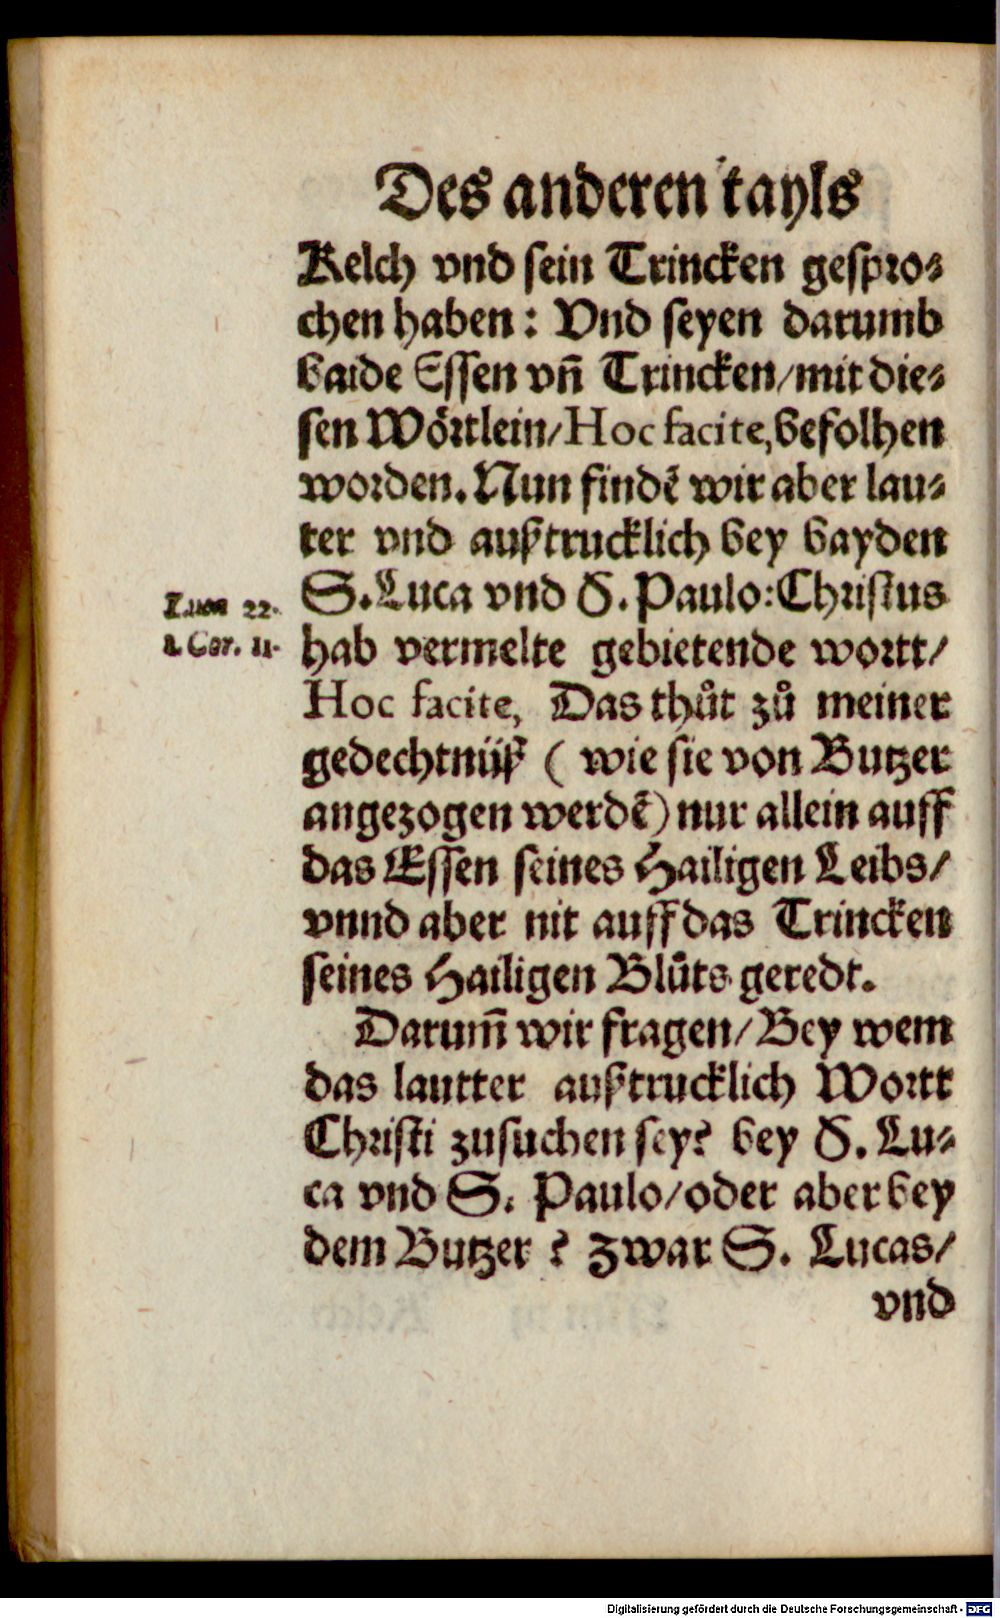 Des anderen tayls
Kelch vnd sein Trincken gespro⸗
chen haben: Vnd seyen darumb
baide Essen vñ Trincken/mit die⸗
sen Woͤrtlein/Hoc facite, befolhen
worden. Nun findẽ wir aber lau⸗
ter vnd außtrucklich bey bayden
S. Luca vnd S. Paulo: Christus
Luca 22.
1. Cor. 11.
hab vermelte gebietende wortt/
Hoc facite, Das thuͦt zuͦ meiner
gedechtnüß ( wie sie von Butzer
angezogen werdẽ) nur allein auff
das Essen seines Hailigen Leibs/
vnnd aber nit auff das Trincken
seines Hailigen Bluͦts geredt.
Darum̃ wir fragen/Bey wem
das lautter außtrucklich Wortt
Christi zusuchen sey? bey S. Lu⸗
ca vnd S. Paulo/oder aber bey
dem Butzer? zwar S. Lucas/
vnd
Digitalisierung gefördert durch die Deutsche Forschungsgemeinschaft - DFG